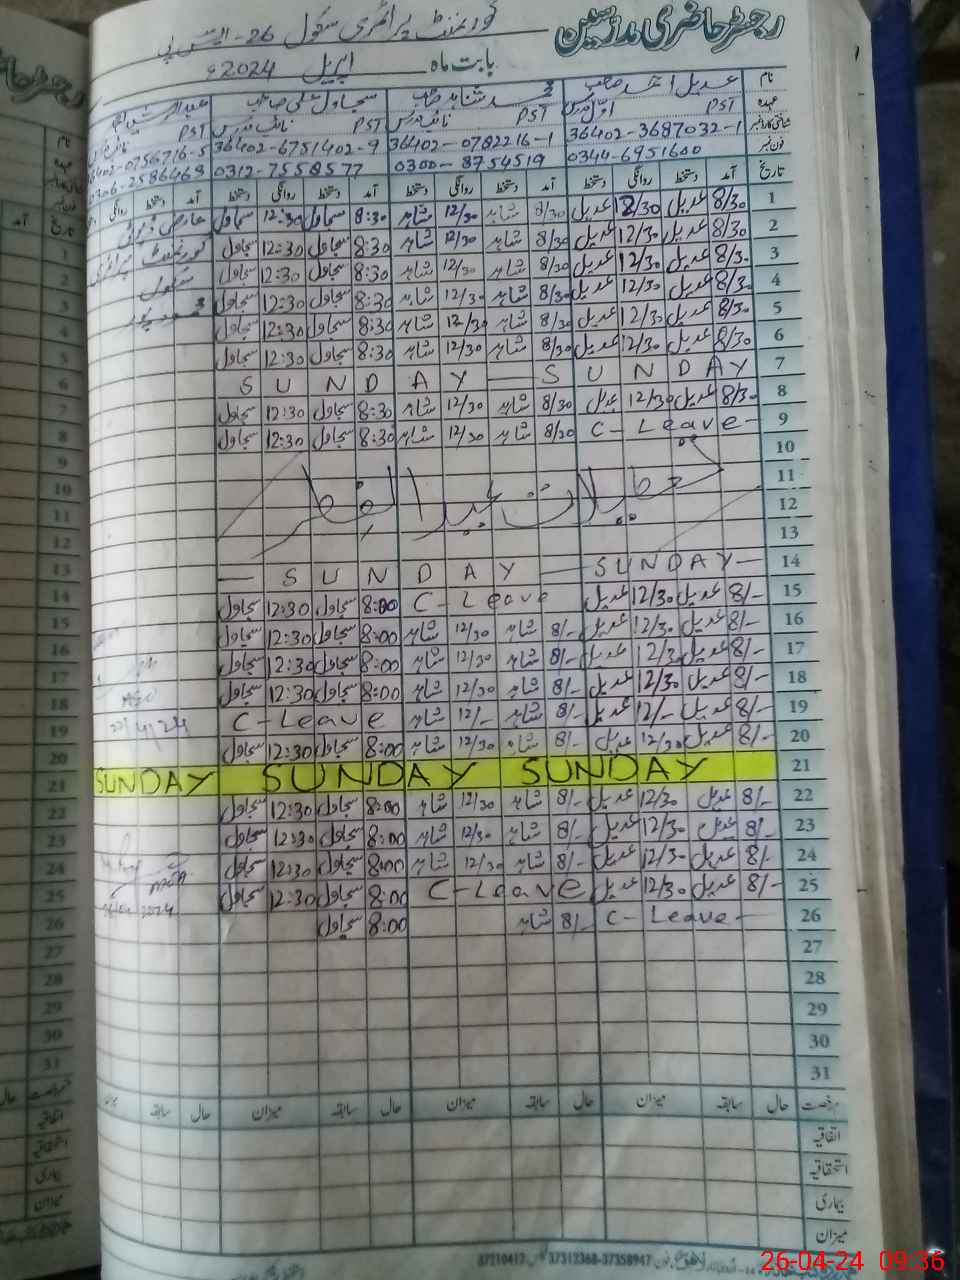 رجسٹر حاضری مدرسین
گورنمنٹ پرائمری سکول 26-ایس پی
بابت ماہ اپریل 2024ء
نام عدیل احمد صاحب محمد شاہد صاحب سجاول علی صاحب
عہدہ PST اول مدرس PST نائب مدرس PST نائب مدرس
شناختی کارڈ نمبر 36402-3687032-1 36402-0782216-1 36402-6751402-9 36402-0756716-5
فون نمبر 0344-6951600 0300-8754519 0312-7558577 0306-2586468
تاریخ آمد دستخط روانگی دستخط آمد دستخط روانگی دستخط آمد دستخط روانگی دستخط آمد دستخط روانگی
1 8/30 عدیل 12/30 عدیل 8/30 شاہد 12/30 شاہد 8:30 سجاول 12:30 سجاول عارضی ڈیوٹی
2 8/30 عدیل 12/30 عدیل 8/30 شاہد 12/30 شاہد 8:30 سجاول 12:30 سجاول گورنمنٹ پرائمری
3 8/30 عدیل 12/30 عدیل 8/30 شاہد 12/30 شاہد 8:30 سجاول 12:30 سجاول سکول
4 8/30 عدیل 12/30 عدیل 8/30 شاہد 12/30 شاہد 8:30 سجاول 12:30 سجاول
5 8/30 عدیل 12/30 عدیل 8/30 شاہد 12/30 شاہد 8:30 سجاول 12:30 سجاول
6 8/30 عدیل 12/30 عدیل 8/30 شاہد 12/30 شاہد 8:30 سجاول 12:30 سجاول
7 SUNDAY — SUNDAY
8 8/30 عدیل 12/30 عدیل 8/30 شاہد 12/30 شاہد 8:30 سجاول 12:30 سجاول
9 C-Leave- 8/30 شاہد 12/30 شاہد 8:30 سجاول 12:30 سجاول
10
11 تعطیلات عیدالفطر
12
13
14 — SUNDAY — SUNDAY —
15 8/- عدیل 12/30 عدیل C-Leave 8:00 سجاول 12:30 سجاول
16 8/- عدیل 12/30 عدیل 8/- شاہد 12/30 شاہد 8:00 سجاول 12:30 سجاول
17 8/- عدیل 12/30 عدیل 8/- شاہد 12/30 شاہد 8:00 سجاول 12:30 سجاول
18 8/- عدیل 12/30 عدیل 8/- شاہد 12/30 شاہد 8:00 سجاول 12:30 سجاول
19 8/- عدیل 12/- عدیل 8/- شاہد 12/- شاہد C-Leave
20 8/- عدیل 12/30 عدیل 8/- شاہد 12/30 شاہد 8:00 سجاول 12:30 سجاول
21 SUNDAY SUNDAY SUNDAY
22 8/- عدیل 12/30 عدیل 8/- شاہد 12/30 شاہد 8:00 سجاول 12:30 سجاول
23 8/- عدیل 12/30 عدیل 8/- شاہد 12/30 شاہد 8:00 سجاول 12:30 سجاول
24 8/- عدیل 12/30 عدیل 8/- شاہد 12/30 شاہد 8:00 سجاول 12:30 سجاول
25 8/- عدیل 12/30 عدیل C-Leave 8:00 سجاول 12:30 سجاول
26 C-Leave — 8/- شاہد 8:00 سجاول
27
28
29
30
31
رخصت حال سابقہ میزان حال سابقہ میزان حال سابقہ میزان حال سابقہ میزان
اتفاقیہ
استحقاقیہ
بیماری
میزان
37312368-37358947 37210417
26-04-24 09:36